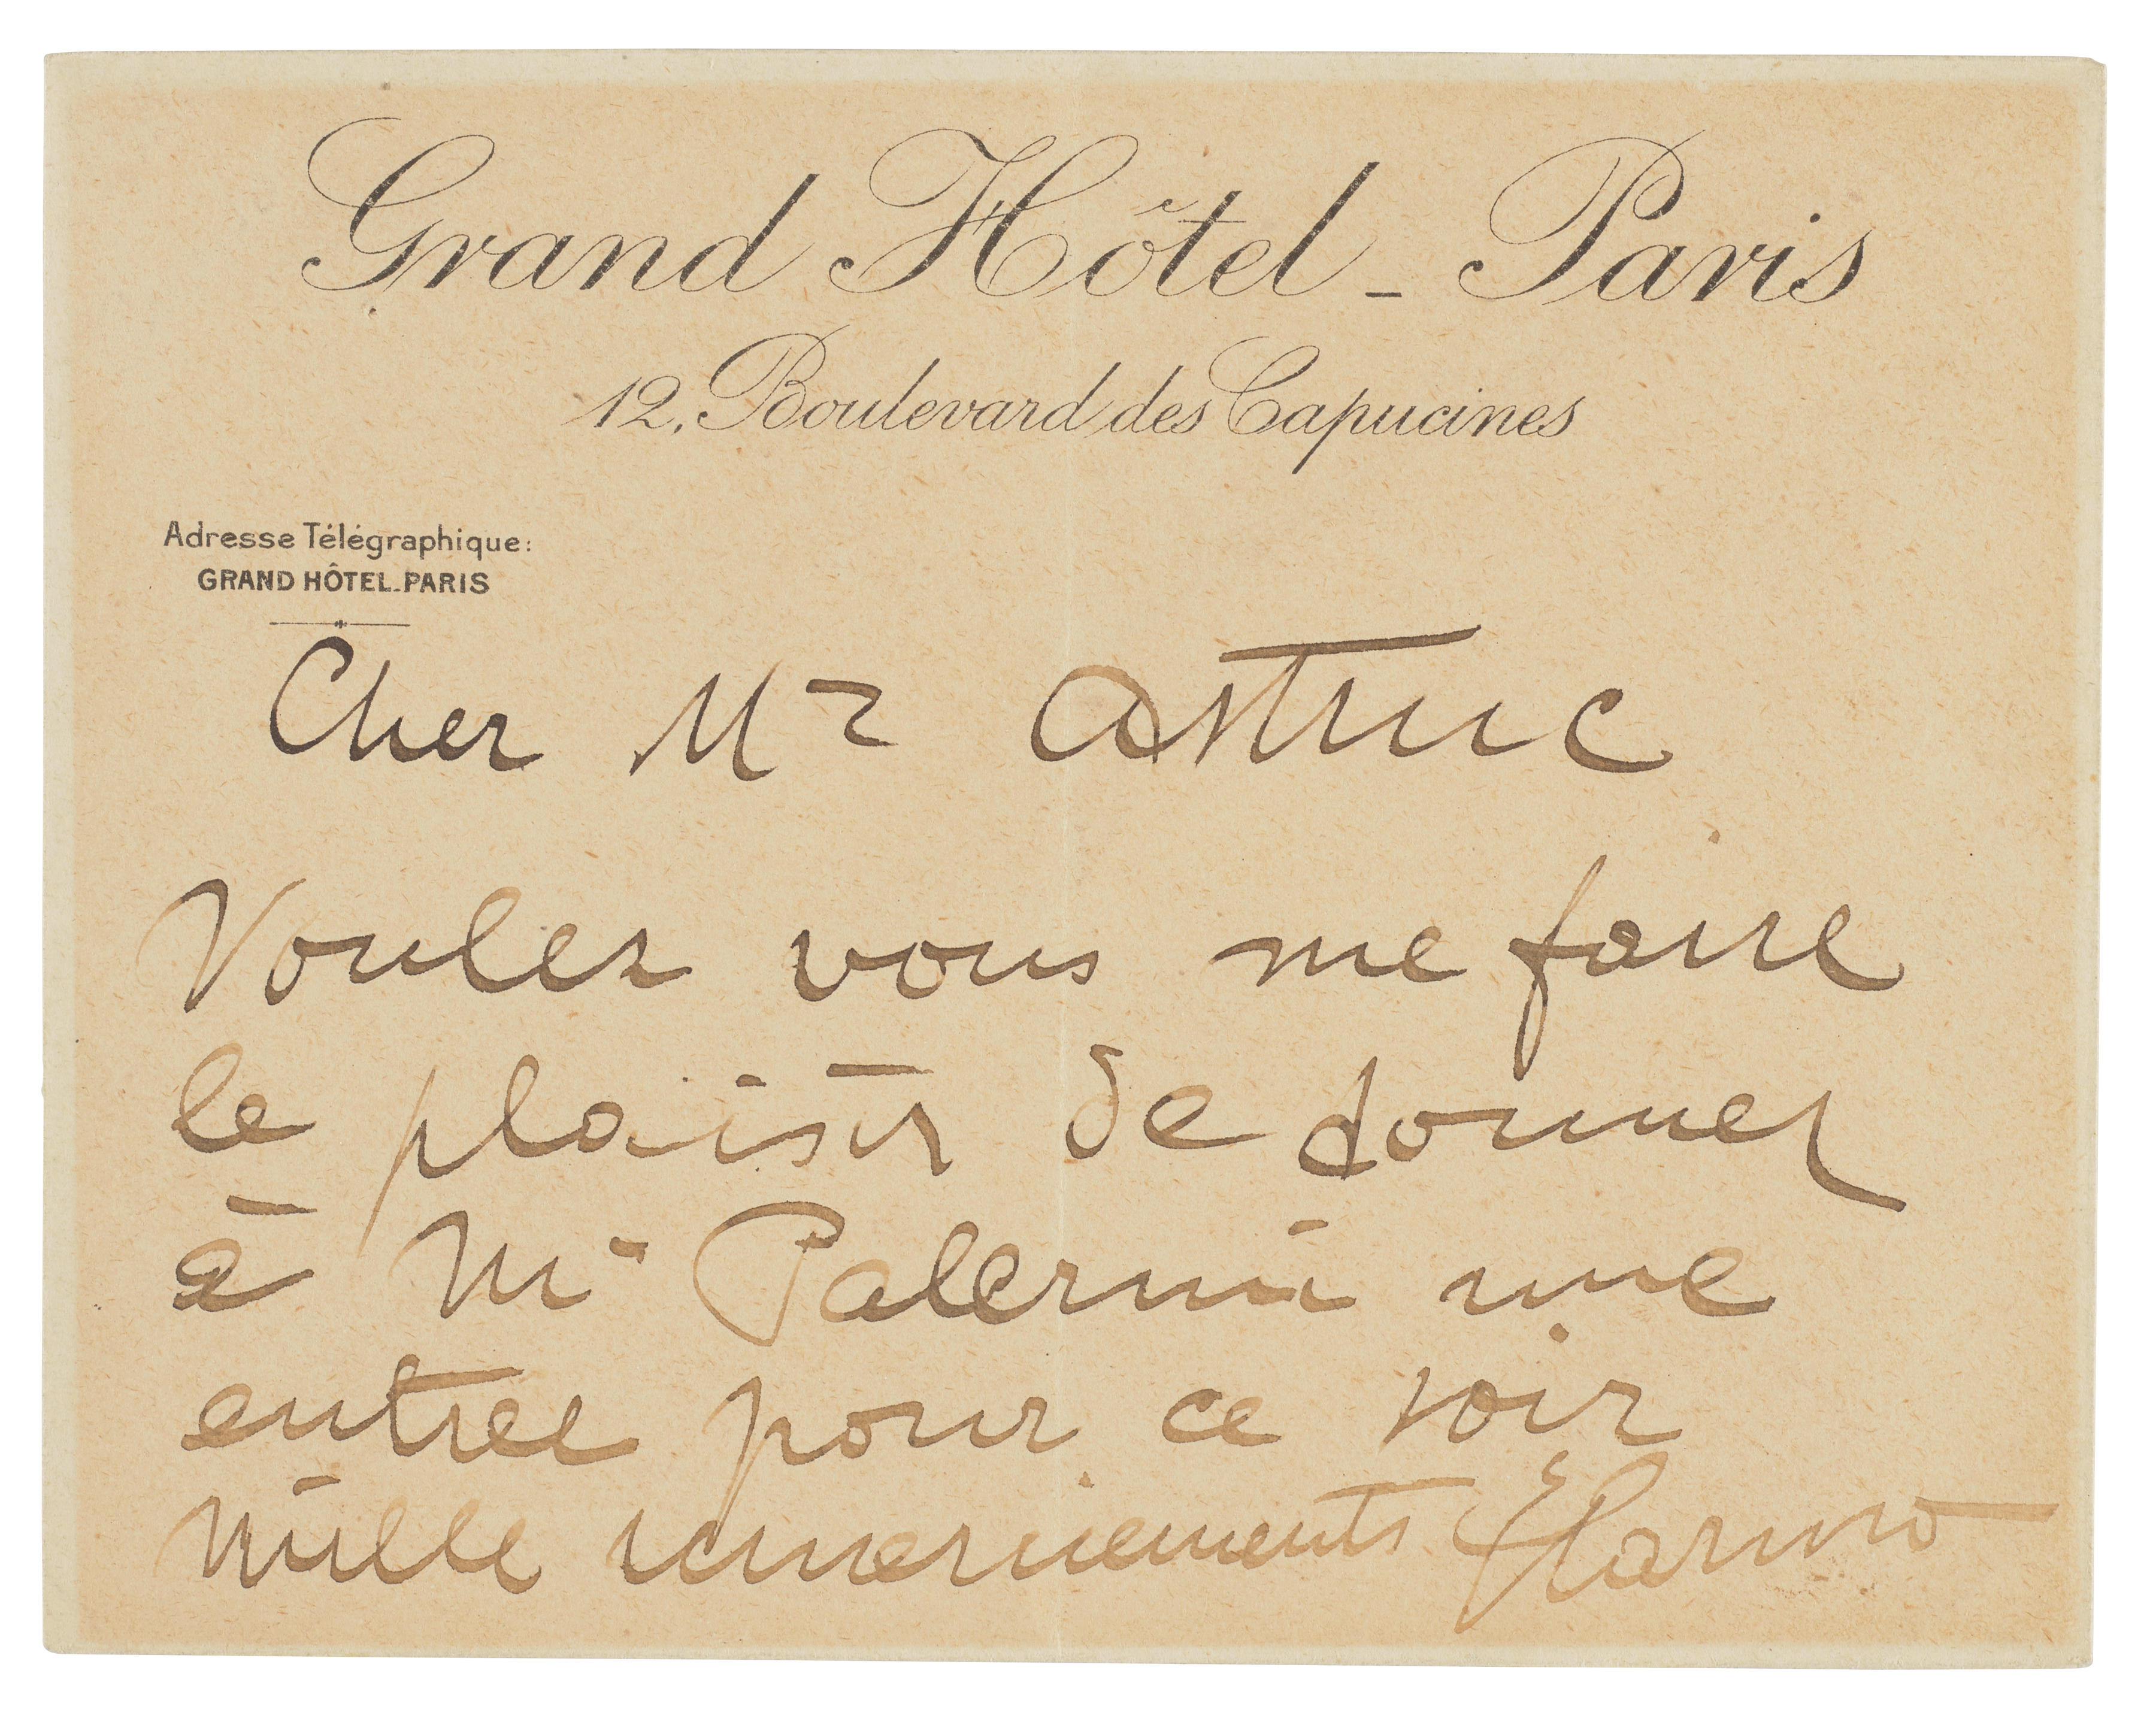 Grand Hôtel - Paris
12, Boulevard des Capucines
Adresse Télégraphique:
GRAND HÔTEL-PARIS
Cher Mr Astruc
Voulez vous me faire
le plaisir de donner
à Mr Palermi une
entree pour ce soir
Mille remerciements